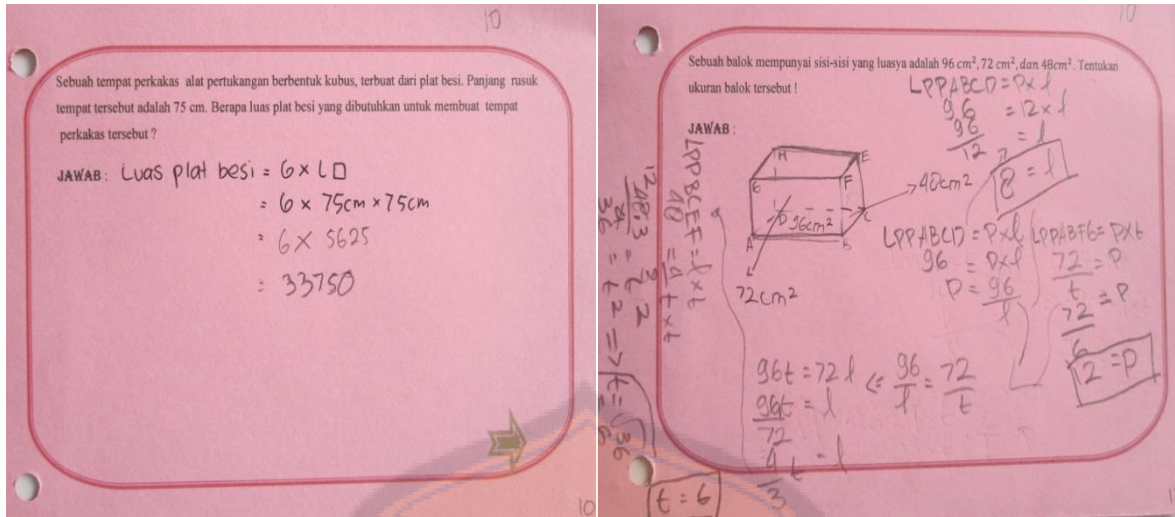 10
Sebuah tempat perkakas alat pertukangan berbentuk kubus, terbuat dari plat besi. Panjang rusuk
tempat tersebut adalah 75 cm. Berapa luas plat besi yang dibutuhkan untuk membuat tempat
perkakas tersebut ?
JAWAB : Luas plat besi = 6 × L□
= 6 × 75cm × 75cm
= 6 × 5625
= 33750
10
10
Sebuah balok mempunyai sisi-sisi yang luasya adalah 96 cm², 72 cm², dan 48cm². Tentukan
ukuran balok tersebut !
JAWAB :
LPPABCD = P × l
96 = 12 × l
96/12 = l
8 = l
H E
G F
D C
A B
96cm²
72cm²
LPPABCD = P×l
96 = P×l
P = 96/l
LPPABFG = P×t
72/t = P
72/6 = P
12 = P
LPPBCEF = l×t
96/l = 72/t
96t = 72 l
96t/72 = l
4/3 t = l
36 = t²
t = √36
t = 6